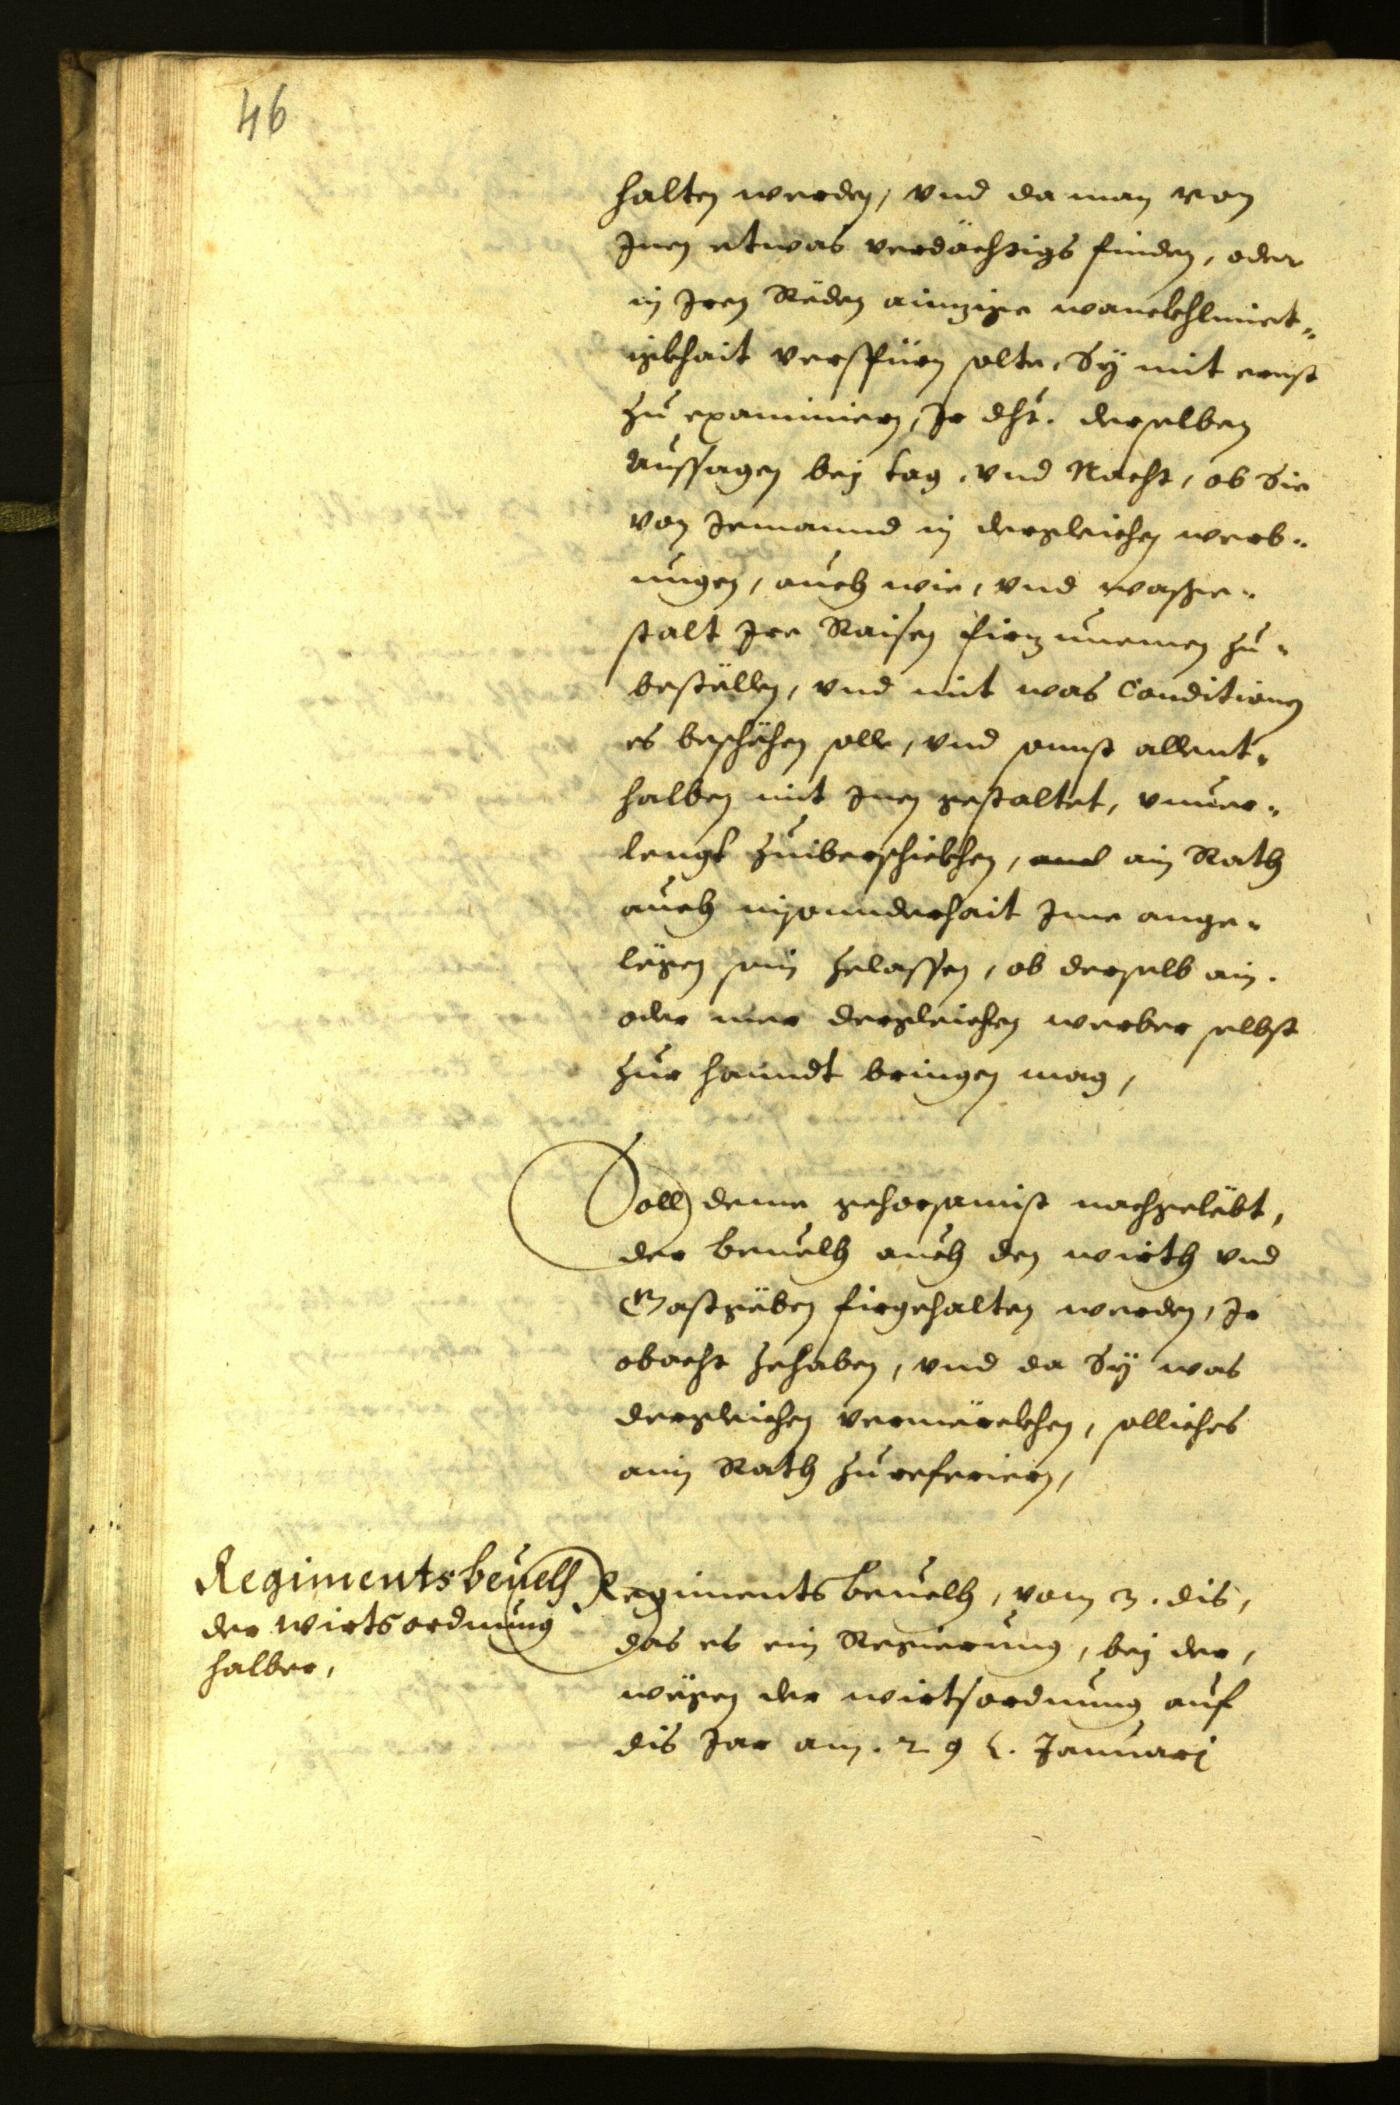 46
halten werden, vnd da man von
Inen etwas verdächtigs finden, oder
in Iren Räden ainzige wanckhlmiet-
igkhait verspürn solte, Sÿ mit ernst
zu examiniern, Ir dht. derselben
Aussagen bey tag, vnd Nacht, ob Sie
von Jemannd in dergleichen werb-
ungen, auch wie, vnd wasge-
stalt Ire Raisen firzunemen zu-
beställen, vnd mit was Conditionen
es beschähen solle, vnd sonnst allent-
halben mit Inen gestaltet, vnuer-
lengt zuiberschickhen, ain Rath
auch insonnderhait Ime ange-
lägen sein zelassen, ob derselb ain.
oder mer dergleichen werber selbst
zur hanndt bringen mag,
Soll deme gehorsamist nachgeläbt,
der beuelh auch den wirth vnd
Gastgäben firgehalten werden, Ir
obacht zehaben, vnd da Sÿ was
dergleichen vermörckhen, solliches
aim Rath zu referiern,
Regimentsbeuelh
der wirtsordnung
halber,
Regiments beuelh, vom 3. dis,
das es ein Regierung, bey der,
wägen der wirtsordnung auf
dis Jar am. 29 t. Januarj